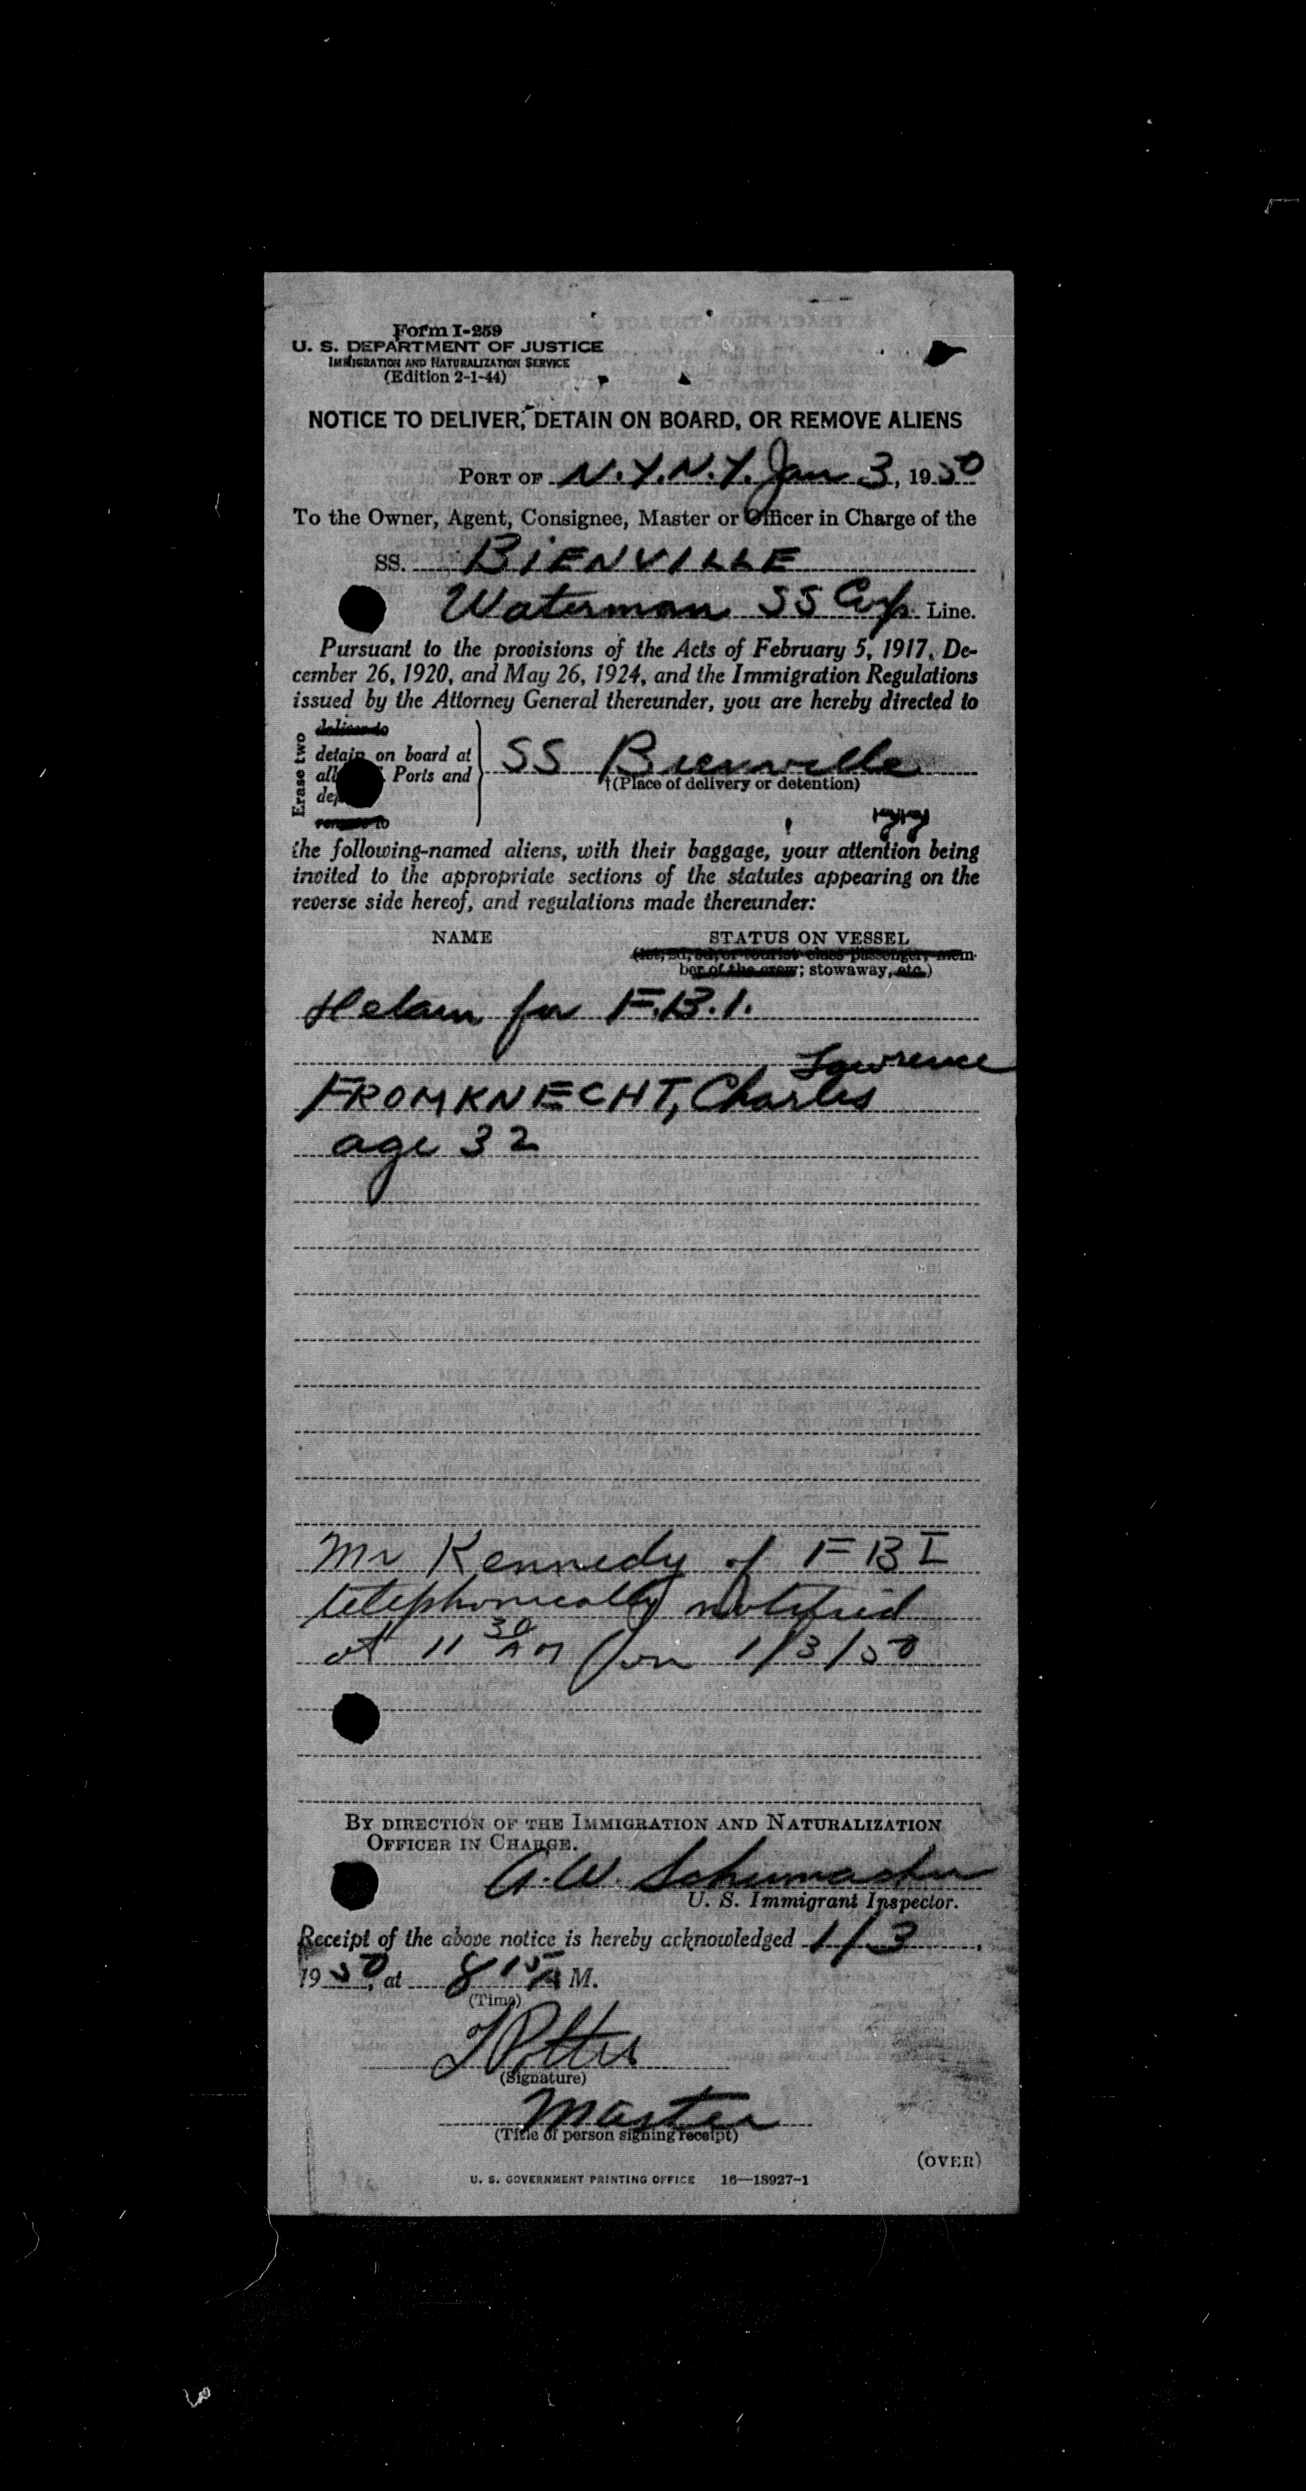 Form I-259
U. S. DEPARTMENT OF JUSTICE
IMMIGRATION AND NATURALIZATION SERVICE
(Edition 2-1-44)
NOTICE TO DELIVER, DETAIN ON BOARD, OR REMOVE ALIENS
PORT OF N.Y.N.Y. Jan 3, 1950
To the Owner, Agent, Consignee, Master or Officer in Charge of the
SS. BIENVILLE
Waterman SS Corp. Line.
Pursuant to the provisions of the Acts of February 5, 1917, De-
cember 26, 1920, and May 26, 1924, and the Immigration Regulations
issued by the Attorney General thereunder, you are hereby directed to
Erase two
deliver to
detain on board at
all Ports and
remove to
SS Bienville
†(Place of delivery or detention)
the following-named aliens, with their baggage, your attention being
invited to the appropriate sections of the statutes appearing on the
reverse side hereof, and regulations made thereunder:
NAME STATUS ON VESSEL
(1st, 2d, 3d, or tourist class passenger, mem-
ber of the crew; stowaway, etc.)
Detain for F.B.I.
Lawrence
FROMKNECHT, Charles
age 32
Mr Kennedy of FBI
telephonically notified
at 11 30 AM on 1/3/50
BY DIRECTION OF THE IMMIGRATION AND NATURALIZATION
OFFICER IN CHARGE.
A. W. Schumacher
U. S. Immigrant Inspector.
Receipt of the above notice is hereby acknowledged 1/3,
1950, at 8 15 A M.
(Time)
(Signature)
Master
(Title of person signing receipt)
(OVER)
U. S. GOVERNMENT PRINTING OFFICE 16—18927-1